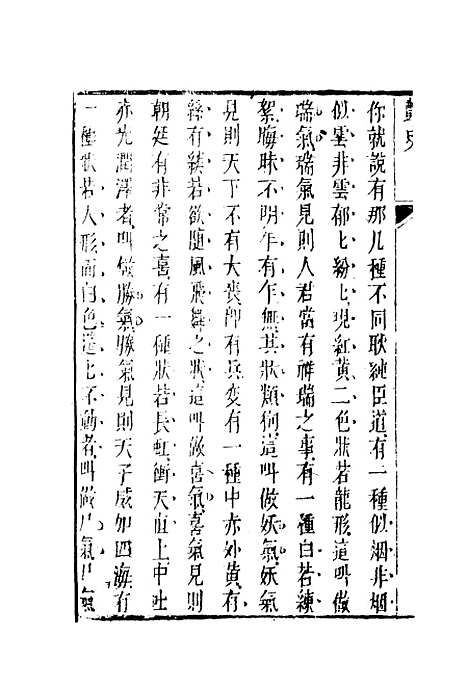 你就說有那几種不同耿純臣道有一種似烟非烟
似雲非雲郁匕紛匕現紅黄二色狀若龍形這叫做
瑞氣瑞氣見則人君當有祥瑞之事有一種白若練
絮晦昧不明乍有乍無其狀類狗這叫做妖氣妖氣
見則天下不有大喪卽有兵變有一種中赤外黄有
絲有縷若欲隨風飛舞之狀這叫做喜氣喜氣見則
朝廷有非常之喜有一種狀若長虹衝天直上中吐
赤光潤澤者叫做勝氣勝氣見則天子威加四海有
一種狀若人形面白色蓬匕不動者叫做尸氣尸氣
史